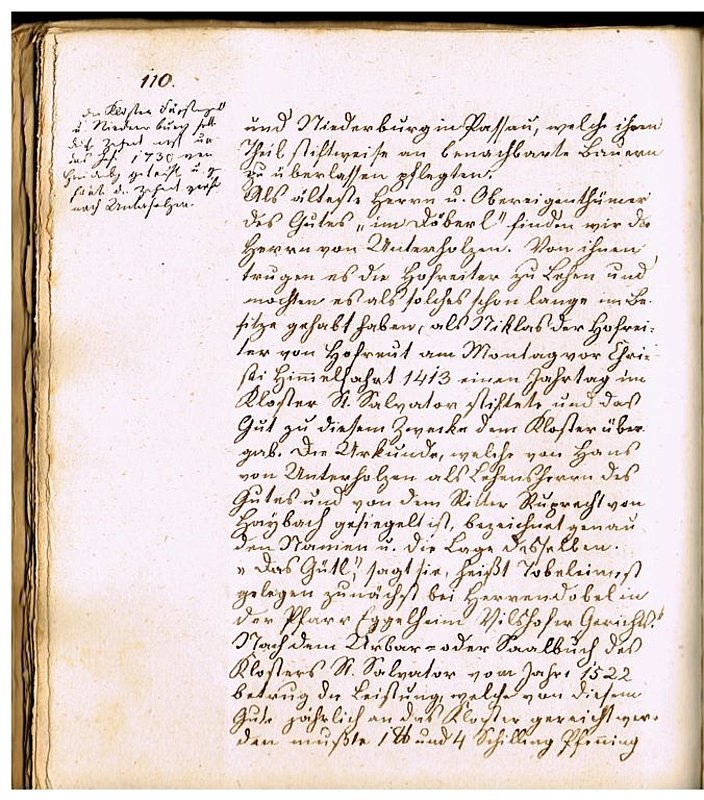 110.
Die Klöster Fürstenzell
u. Niedernburg
das Jahr 1730
nach Unterholzen.
und Niederburg in Passau, welche ihren
Theil stiftweise an benachbarte Bauern
zu überlassen pflegten.
Als älteste Herrn u. Obereigenthümer
des Gutes „im Döberl" finden wir die
Herrn von Unterholzen. Von ihnen
trugen es die Hofreiter zu Lehen und
mochten es als solches schon lange im Be-
sitze gehabt haben, als Niklas der Hofrei-
ter von Hofreut am Montag vor Chri-
sti Himmelfahrt 1413 einen Jahrtag im
Kloster St. Salvator stiftete und das
Gut zu diesem Zwecke dem Kloster über-
gab. Die Urkunde, welche von Hans
von Unterholzen als Lehensherrn des
Gutes und von dem Ritter Ruprecht von
Haybach gesiegelt ist, bezeichnet genau
den Namen u. die Lage desselben.
„Das Gütl", sagt sie, „heißt Tobel
gelegen zunächst bei Herrendobel in
der Pfarr Eggelheim Vilshofer Gerichts."
Nach dem Urbar- oder Saalbuch des
Klosters St. Salvator vom Jahre 1522
betrug die Leistung, welche von diesem
Gute jährlich an das Kloster gereicht wer-
den mußte 1 ℔ und 4 Schilling Pfenning